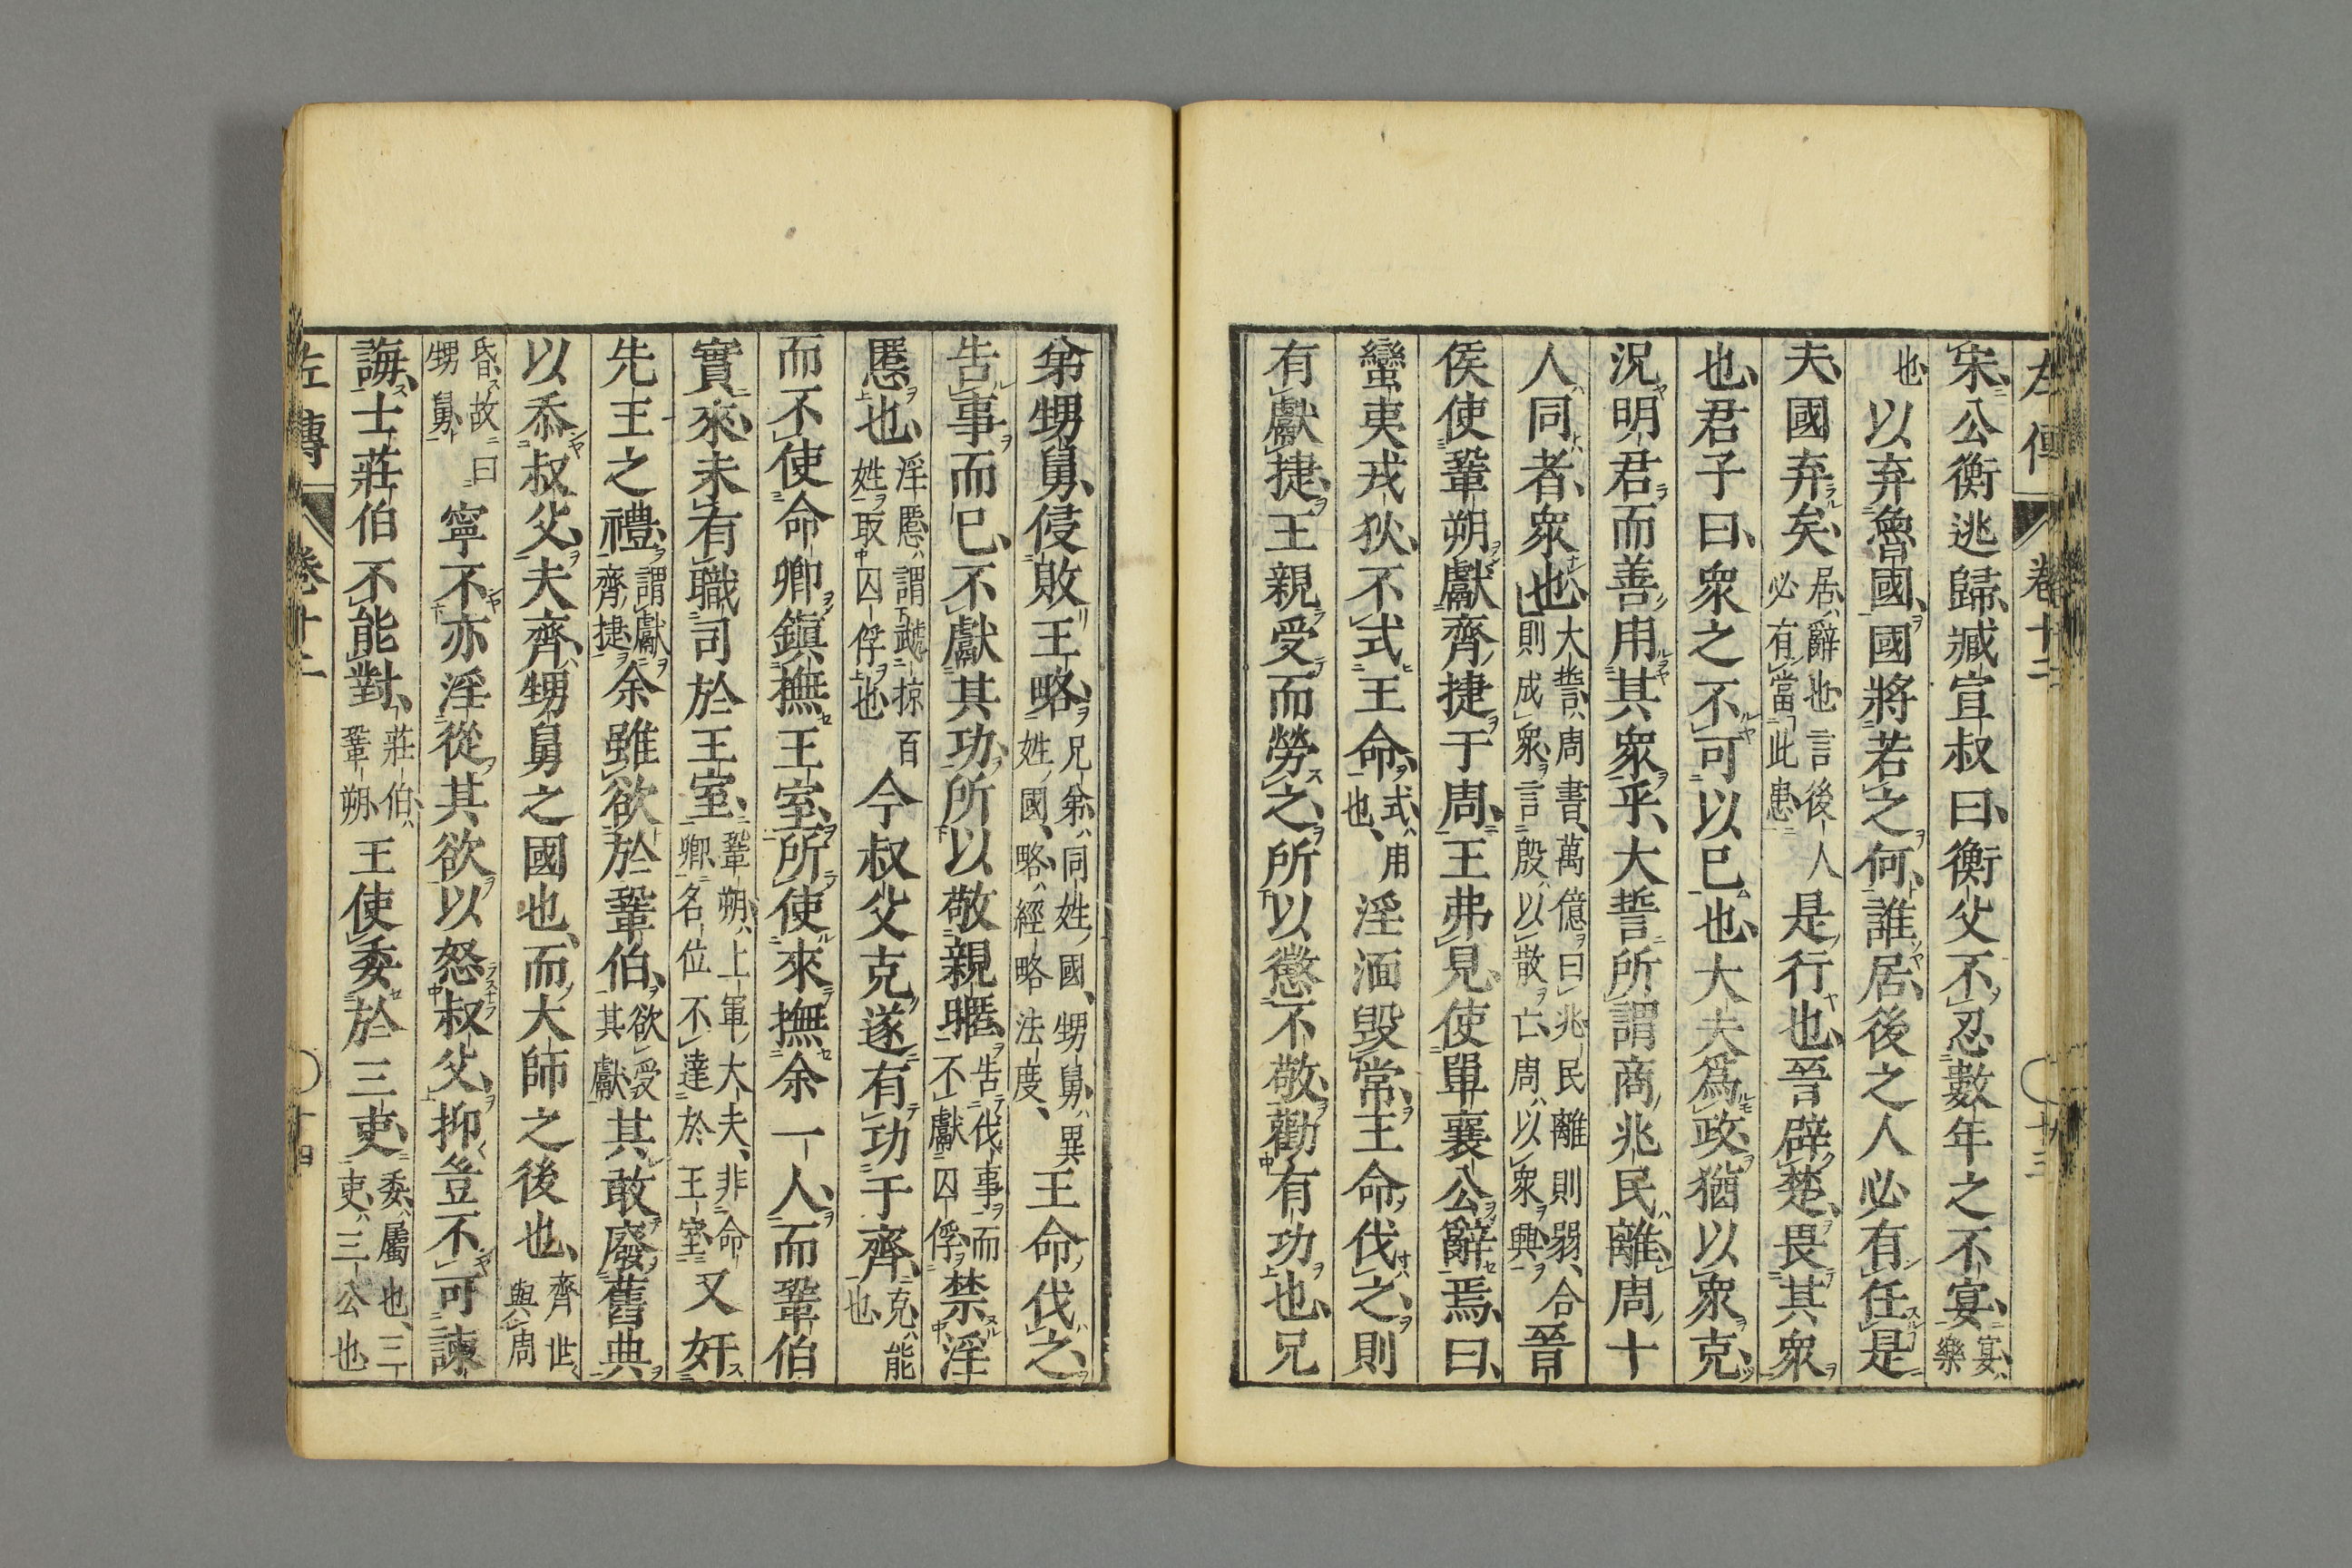 左傳 卷十二 十三
宋公衡逃歸臧宣叔曰衡父不忍數年之不宴宴樂
也以弃魯國國將若之何誰居後之人必有任是
夫國弃矣居辭也言後人必有當此患是行也晉辟楚畏其衆
也君子曰衆之不可以已也大夫爲政猶以衆克
況明君而善用其衆乎大誓所謂商兆民離周十
人同者衆也大誓周書萬億曰兆民離則弱合則成衆言殷以散亡周以衆興晉
侯使鞏朔獻齊捷于周王弗見使單襄公辭焉曰
蠻夷戎狄不式王命式用也淫湎毀常王命伐之則
有獻捷王親受而勞之所以懲不敬勸有功也兄
弟甥舅侵敗王略兄弟同姓國甥舅異姓國略經略法度王命伐之
告事而已不獻其功所以敬親暱告伐事而不獻囚俘禁淫
慝也淫慝謂虣掠百姓取囚俘也今叔父克遂有功于齊克能也
而不使命卿鎮撫王室所使來撫余一人而鞏伯
實來未有職司於王室鞏朔上軍大夫非命卿名位不達於王室又奸
先王之禮謂獻齊捷余雖欲於鞏伯欲受其獻其敢廢舊典
以忝叔父夫齊甥舅之國也而大師之後也齊世與周
昏故曰甥舅寧不亦淫從其欲以怒叔父抑豈不可諫
誨士莊伯不能對莊伯鞏朔王使委於三吏委屬也三吏三公也
左傳 卷十二 十四